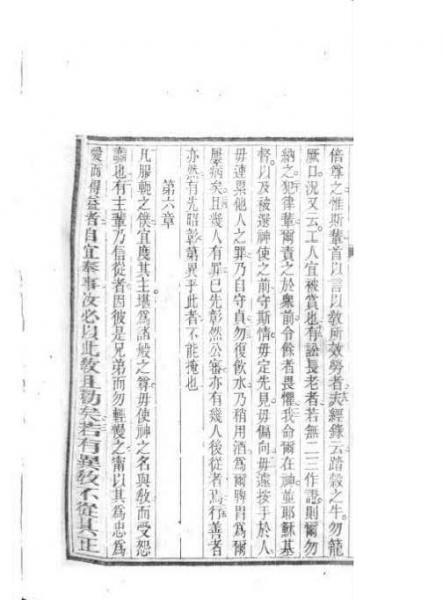 倍尊之惟斯輩首以言以教所效勞者夫經錄云踏穀之牛勿籠
厥口況又云工人宜被賞也有訟長老者若無二三作證則爾勿
納之犯律輩爾責之於衆前令餘者畏懼我命爾在神並耶穌基
督以及被選神使之前守斯情毋定先見毋偏向毋遽按手於人
毋連累他人之罪乃自守貞勿復飲水乃稍用酒爲爾脾胃爲爾
屢病矣且幾人有罪已先彰然公審亦有幾人後從者焉行善者
亦然有先昭彰第異乎此者不能掩也
第六章
凡服軛之僕宜度其主堪爲諸般之尊毋使神之名與教而受怨
讟也有主輩乃信從者因彼是兄弟而勿輕慢之甯以其爲忠爲
愛而得益者自宜奉事汝必以此教且勸矣若有異教不從其正